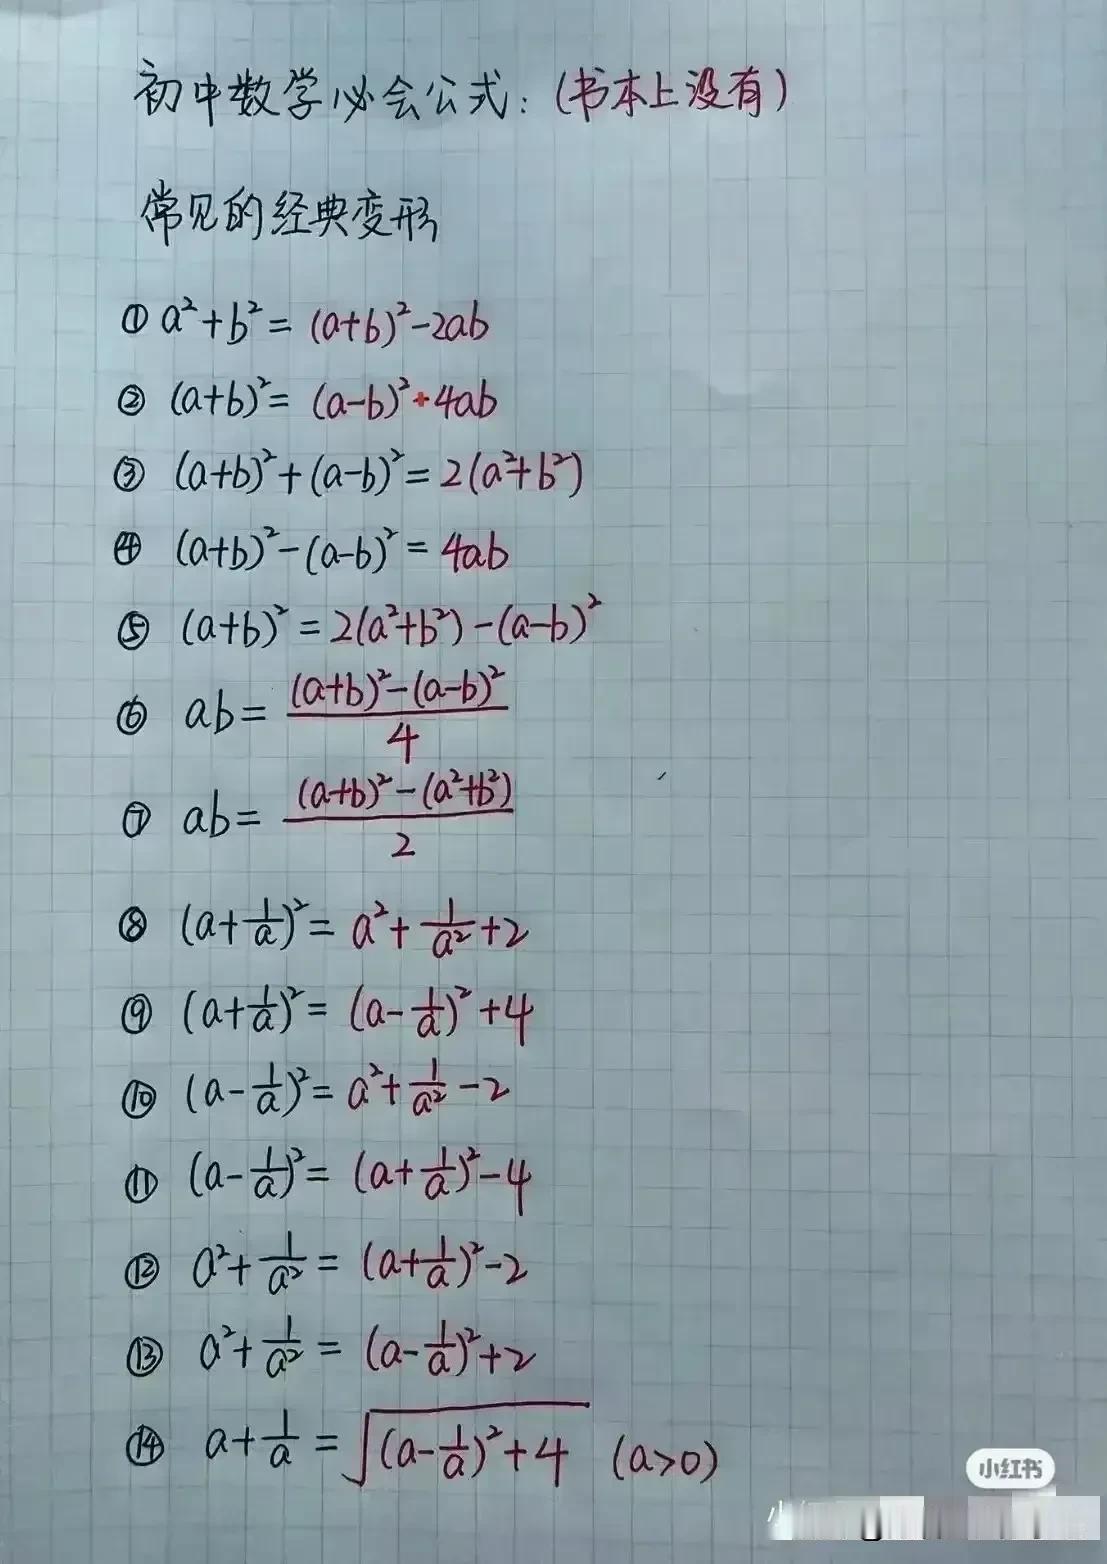 初中数学必会公式：(书本上没有)
常见的经典变形
① a²+b²= (a+b)²-2ab
② (a+b)²= (a-b)²+4ab
③ (a+b)²+(a-b)²= 2(a²+b²)
④ (a+b)²-(a-b)²= 4ab
⑤ (a+b)²= 2(a²+b²)-(a-b)²
⑥ ab= \frac{(a+b)²-(a-b)²}{4}
⑦ ab= \frac{(a+b)²-(a²+b²)}{2}
⑧ (a+\frac{1}{a})²= a²+\frac{1}{a²}+2
⑨ (a+\frac{1}{a})²= (a-\frac{1}{a})²+4
⑩ (a-\frac{1}{a})²= a²+\frac{1}{a²}-2
⑪ (a-\frac{1}{a})²= (a+\frac{1}{a})²-4
⑫ a²+\frac{1}{a²}= (a+\frac{1}{a})²-2
⑬ a²+\frac{1}{a²}= (a-\frac{1}{a})²+2
⑭ a+\frac{1}{a}= \sqrt{(a-\frac{1}{a})²+4} (a>0)
小红书